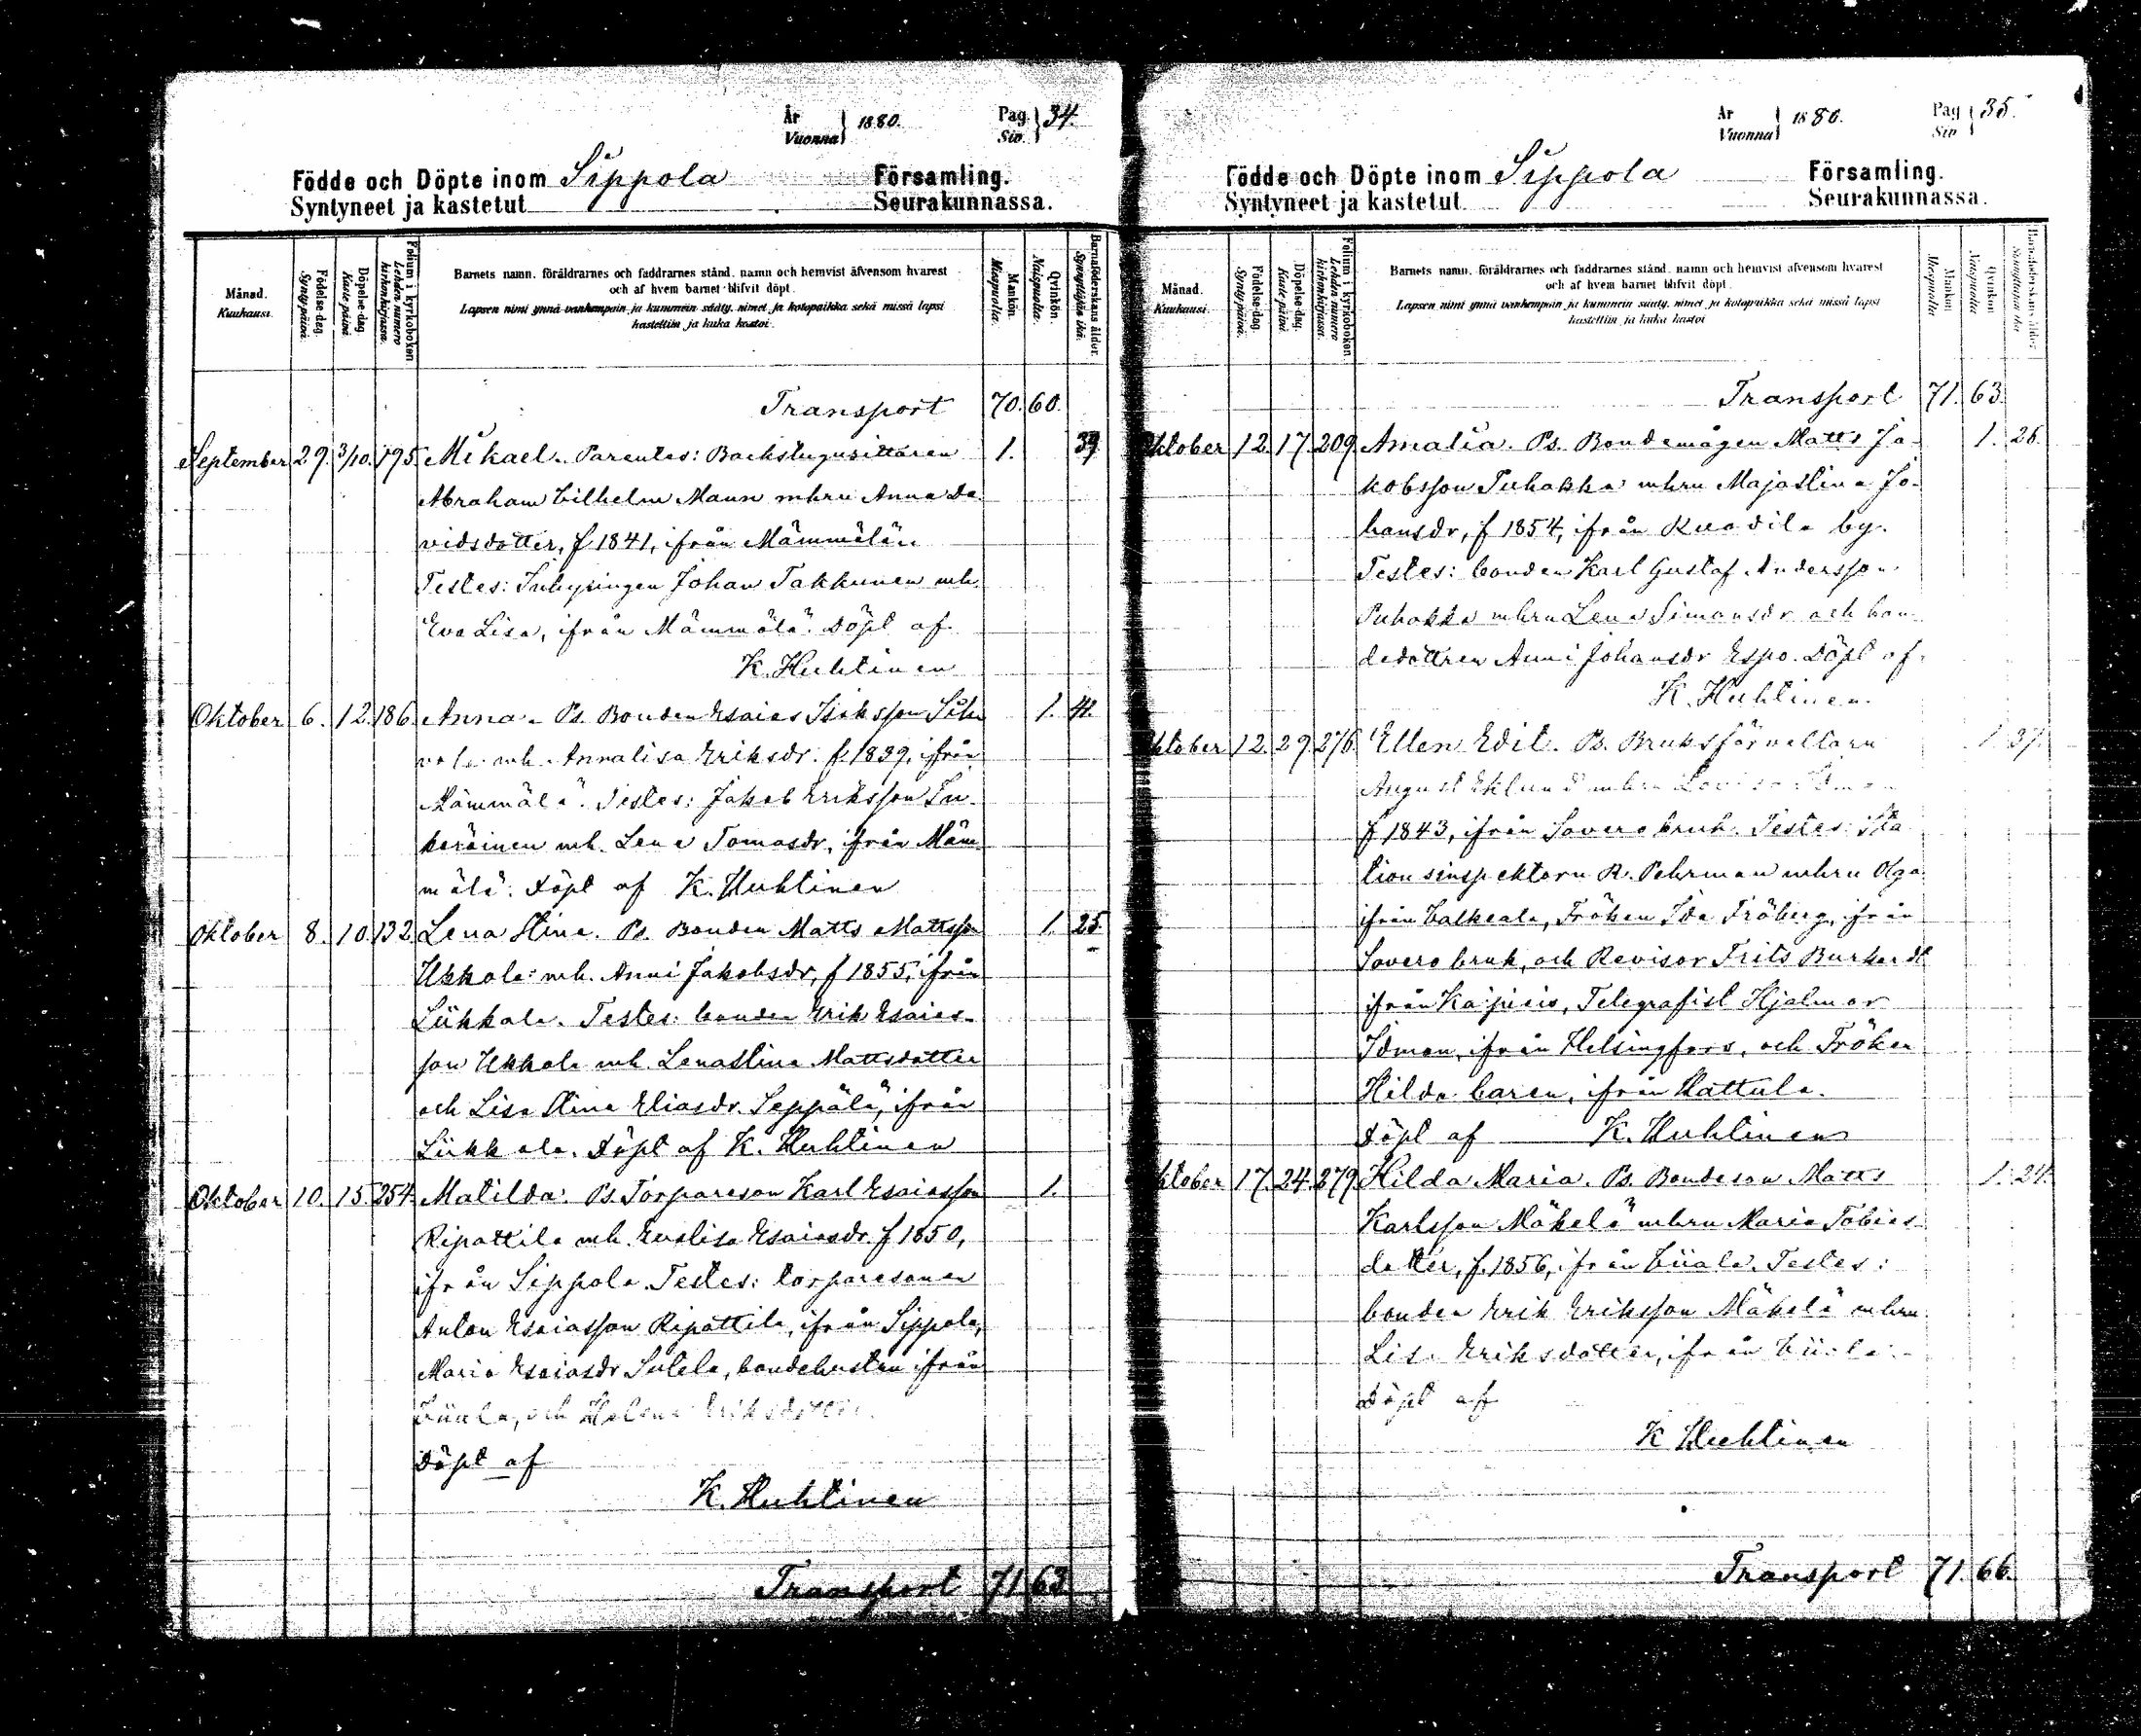 År
Vuonna } 1880.
Pag.
Siv. } 34.
Födde och Döpte inom Sippola Församling.
Syntyneet ja kastetut Seurakunnassa.
Månad.
Kuukausi.
Födelse-dag.
Syntypäivä.
Döpelse-dag.
Kastepäivä.
Folium i kyrkoboken
Lehden numero
kirkonkirjassa.
Barnets namn, föräldrarnes och faddrarnes stånd, namn och hemvist äfvensom hvarest
och af hvem barnet blifvit döpt.
Lapsen nimi ynnä vanhempain ja kummein sääty, nimet ja kotopaikka sekä missä lapsi
kastettiin ja kuka kastoi.
Mankön.
Miespuolia.
Qvinkön.
Naispuolia.
Barnaföderskans ålder.
Synnyttäjän ikä.
Transport 70. 60.
September 29. 3/10. 195. Mikael. Parentes: Backstugusittaren 1. 39
Abraham Vilhelm Maun mhru Anna Da-
vidsdotter, f 1841, ifrån Mämmälä.
Testes: Inhysingen Johan Takkunen mh.
Eva Lisa, ifrån Mämmälä. Döpt af
K. Huhtinen
Oktober 6. 12. 186. Anna. Ps. Bonden Esaias Isaksson 1. 41.
mh. Annalisa Eriksdr. f. 1839, ifrån
Mämmälä. Testes: Jakob Eriksson
mh. Lena Tomasdr, ifrån Mäm-
mälä. Döpt af K. Huhtinen
Oktober 8. 10. 132. Lena Stina. Ps. Bonden Matts Mattsson 1. 25.
Ukkola mh. Anni Jakobsdr, f 1855, ifrån
Liikkala. Testes: bonden Erik Esaias-
son Ukkola mh. Lenastina Mattsdotter
och Lisa Stina Eliasdr. Seppälä, ifrån
Liikkala. Döpt af K. Huhtinen
Oktober 10. 15. 254. Matilda. Ps. Torpareson Karl Esaiasson 1.
Ripattila mh. Evalisa Esaiasdr. f 1850,
ifrån Sippola. Testes: torparesonen
Anton Esaiasson Ripattila, ifrån Sippola,
Maria Esaiasdr Sutela, bondehustru ifrån
Viiala, och Helena Eriksdotter.
Döpt af
K. Huhtinen
Transport 71 63
År
Vuonna } 1880.
Pag
Siv } 35.
Födde och Döpte inom Sippola Församling.
Syntyneet ja kastetut Seurakunnassa.
Månad.
Kuukausi.
Födelse-dag.
Syntypäivä.
Döpelse-dag.
Kastepäivä.
Folium i kyrkoboken
Lehden numero
kirkonkirjassa.
Barnets namn, föräldrarnes och faddrarnes stånd, namn och hemvist äfvensom hvarest
och af hvem barnet blifvit döpt.
Lapsen nimi ynnä vanhempain ja kummein sääty, nimet ja kotopaikka sekä missä lapsi
kastettiin ja kuka kastoi
Mankön
Miespuolia
Qvinkön
Naispuolia
Barnaföderskans ålder
Transport 71. 63.
Oktober 12. 17. 209. Amalia. Ps. Bondemågen Matts Ja- 1. 26.
kobsson Puhakka mhru Majastina Jo-
hansdr, f 1854, ifrån by.
Testes: bonden Karl Gustaf Andersson
Puhakka mhru Lena Simonsdr och bon-
dedottren Anni Johansdr Espo. Döpt af
K. Huhtinen.
Oktober 12. 29. 276. Ellen Edit. Ps. Bruksförvaltarn 1. 37.
August Eklund mhru Lovisa Idman
f 1843, ifrån Sovero bruk. Testes: Sta-
tionsinspektorn R. Pehrman mhru Olga
ifrån Valkeala, Fröken Ida Fröberg, ifrån
Sovero bruk, och Revisor Frits Burkardt
ifrån Kaipiais, Telegrafist Hjalmar
Idman, ifrån Helsingfors, och Fröken
Hilda Caren, ifrån Hattula.
Döpt af K. Huhtinen
Oktober 17. 24. 279. Hilda Maria. Ps. Bondeson Matts 1. 24.
Karlsson Mäkelä mhru Maria Tobias-
dotter, f. 1856, ifrån Viiala. Testes:
bonden Erik Eriksson Mäkelä mhru
Lisa Eriksdotter, ifrån Viiala.
Döpt af
K Huhtinen
Transport 71. 66.